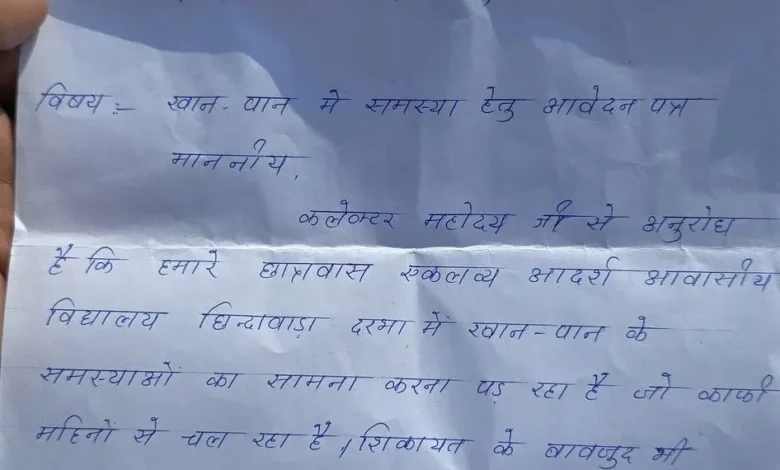 विषय :- खान-पान में समस्या हेतु आवेदन पत्र
माननीय,
कलेक्टर महोदय जी से अनुरोध
है कि हमारे छात्रावास एकलव्य आदर्श आवासीय
विद्यालय छिन्दावाड़ा दरभा में खान-पान के
समस्याओं का सामना करना पड़ रहा है जो काफी
महिनों से चल रहा है, शिकायत के बावजुद भी